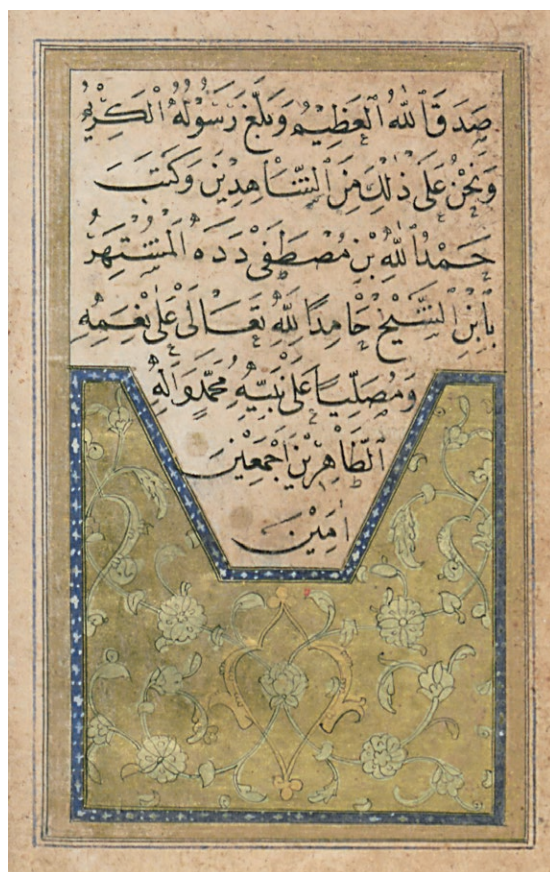 صَدَقَ ٱللّٰهُ ٱلْعَظِيْمُ وَبَلَّغَ رَسُوْلُهُ ٱلْكَرِيْمُ
وَنَحْنُ عَلٰى ذٰلِكَ مِنَ ٱلشَّاهِدِيْنَ وَكَتَبَ
حَمْدُ ٱللّٰهِ بْنِ مُصْطَفٰى دَدَه ٱلْمُشْتَهِرُ
بِٱبْنِ ٱلشَّيْخِ حَامِدًا لِلّٰهِ تَعَالٰى عَلٰى نِعَمِهِ
وَمُصَلِّيًا عَلٰى نَبِيِّهِ مُحَمَّدٍ وَاٰلِهِ
ٱلطَّاهِرِيْنَ اَجْمَعِيْنَ
اٰمِيْنَ